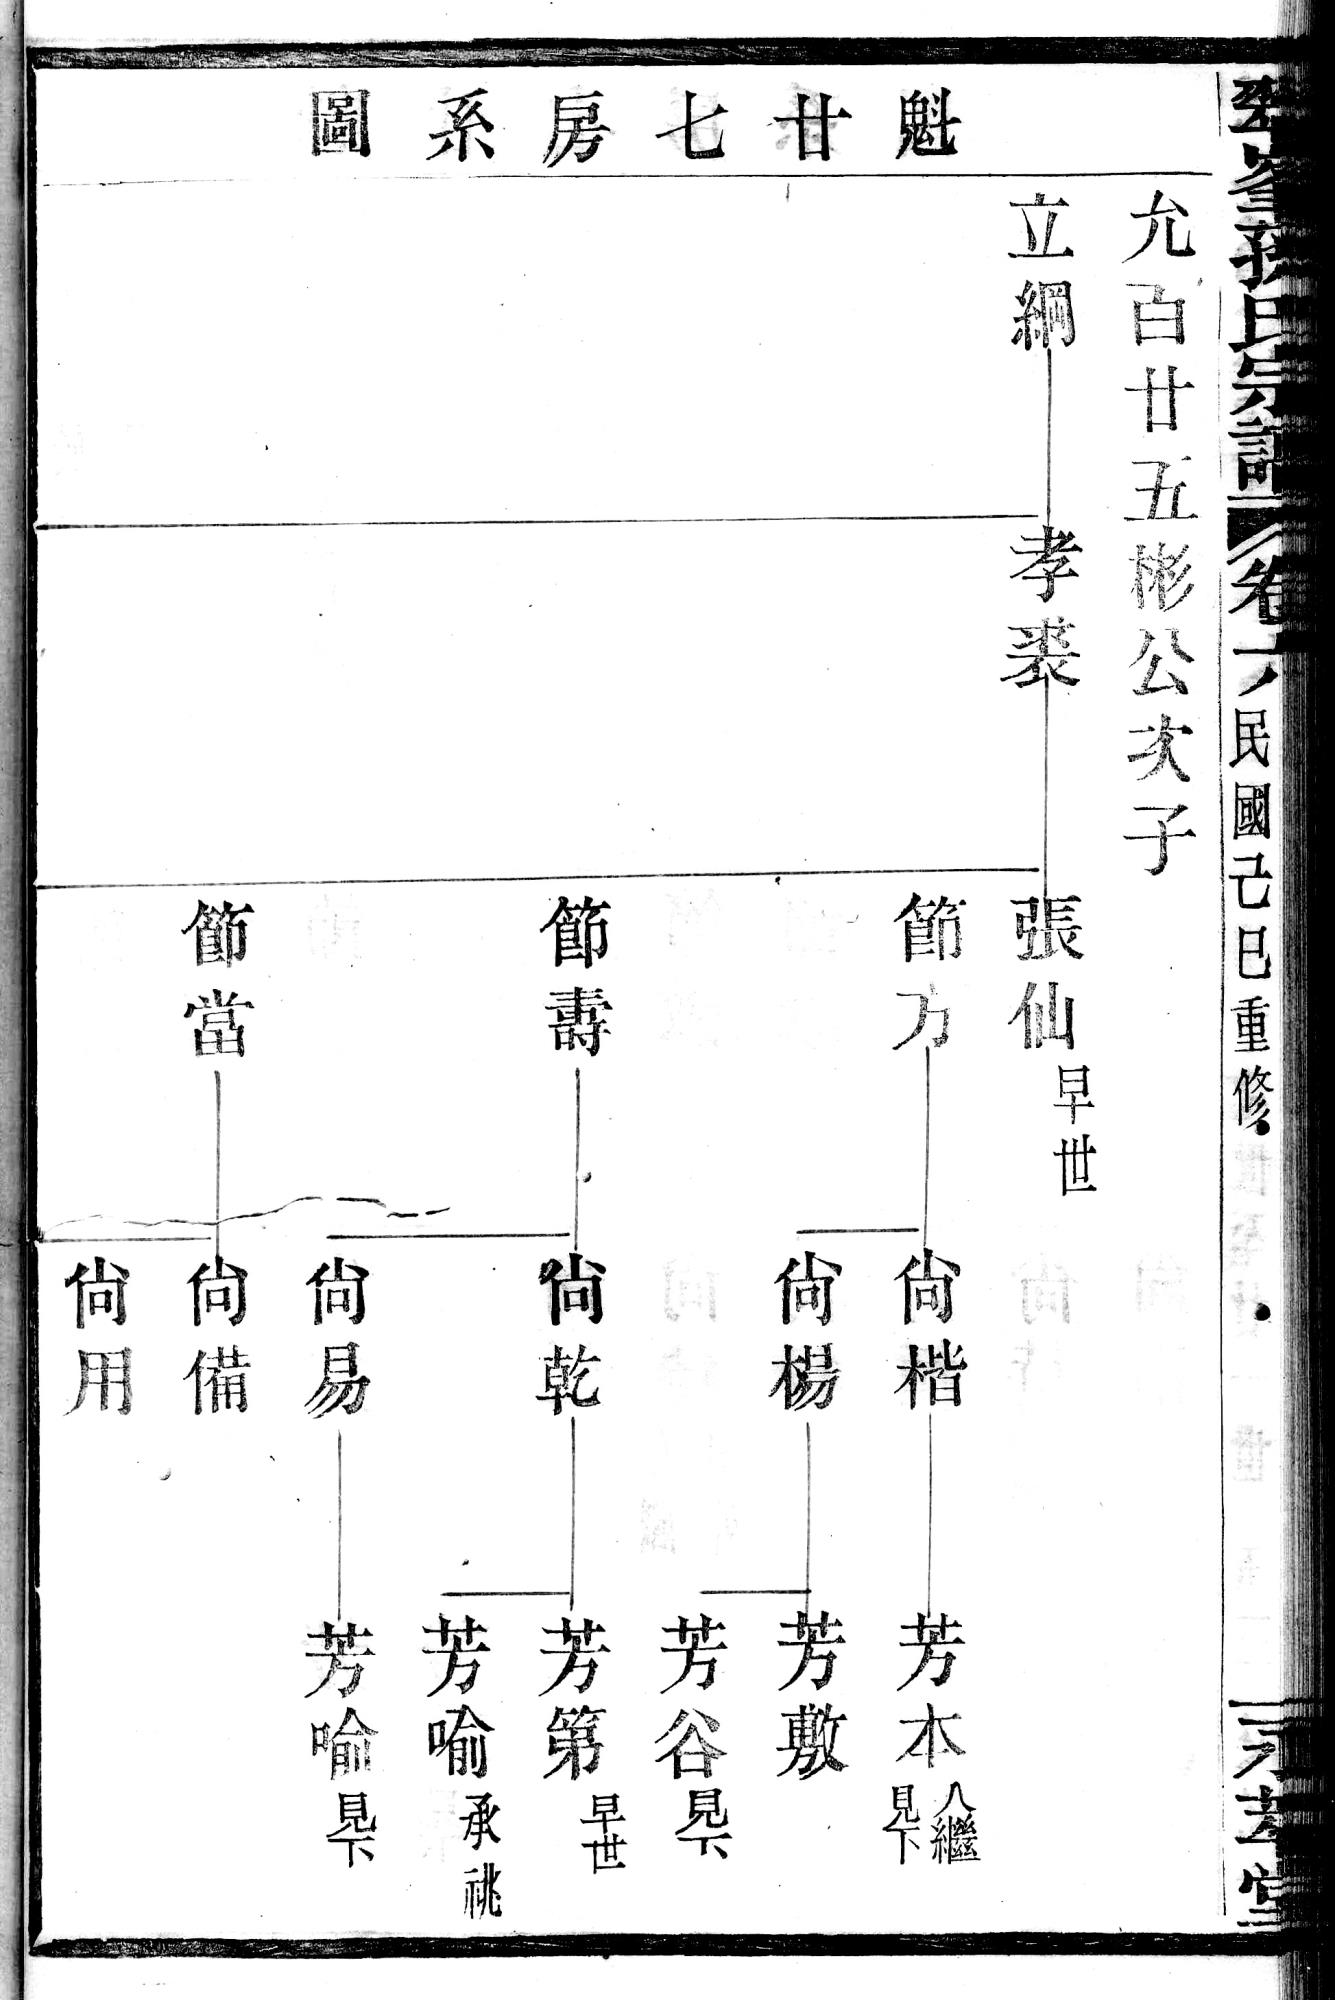 魁廿七房系圖
允百廿五彬公次子
立綱
孝裘
張仙早世
節方
節壽
節當
尙楷
尙楊
尙乾
尙易
尙備
尙用
芳本入繼見下
芳敷
芳谷見下
芳第早世
芳喻承祧
芳喻見下
孫氏宗譜
卷六
民國己巳重修
堂